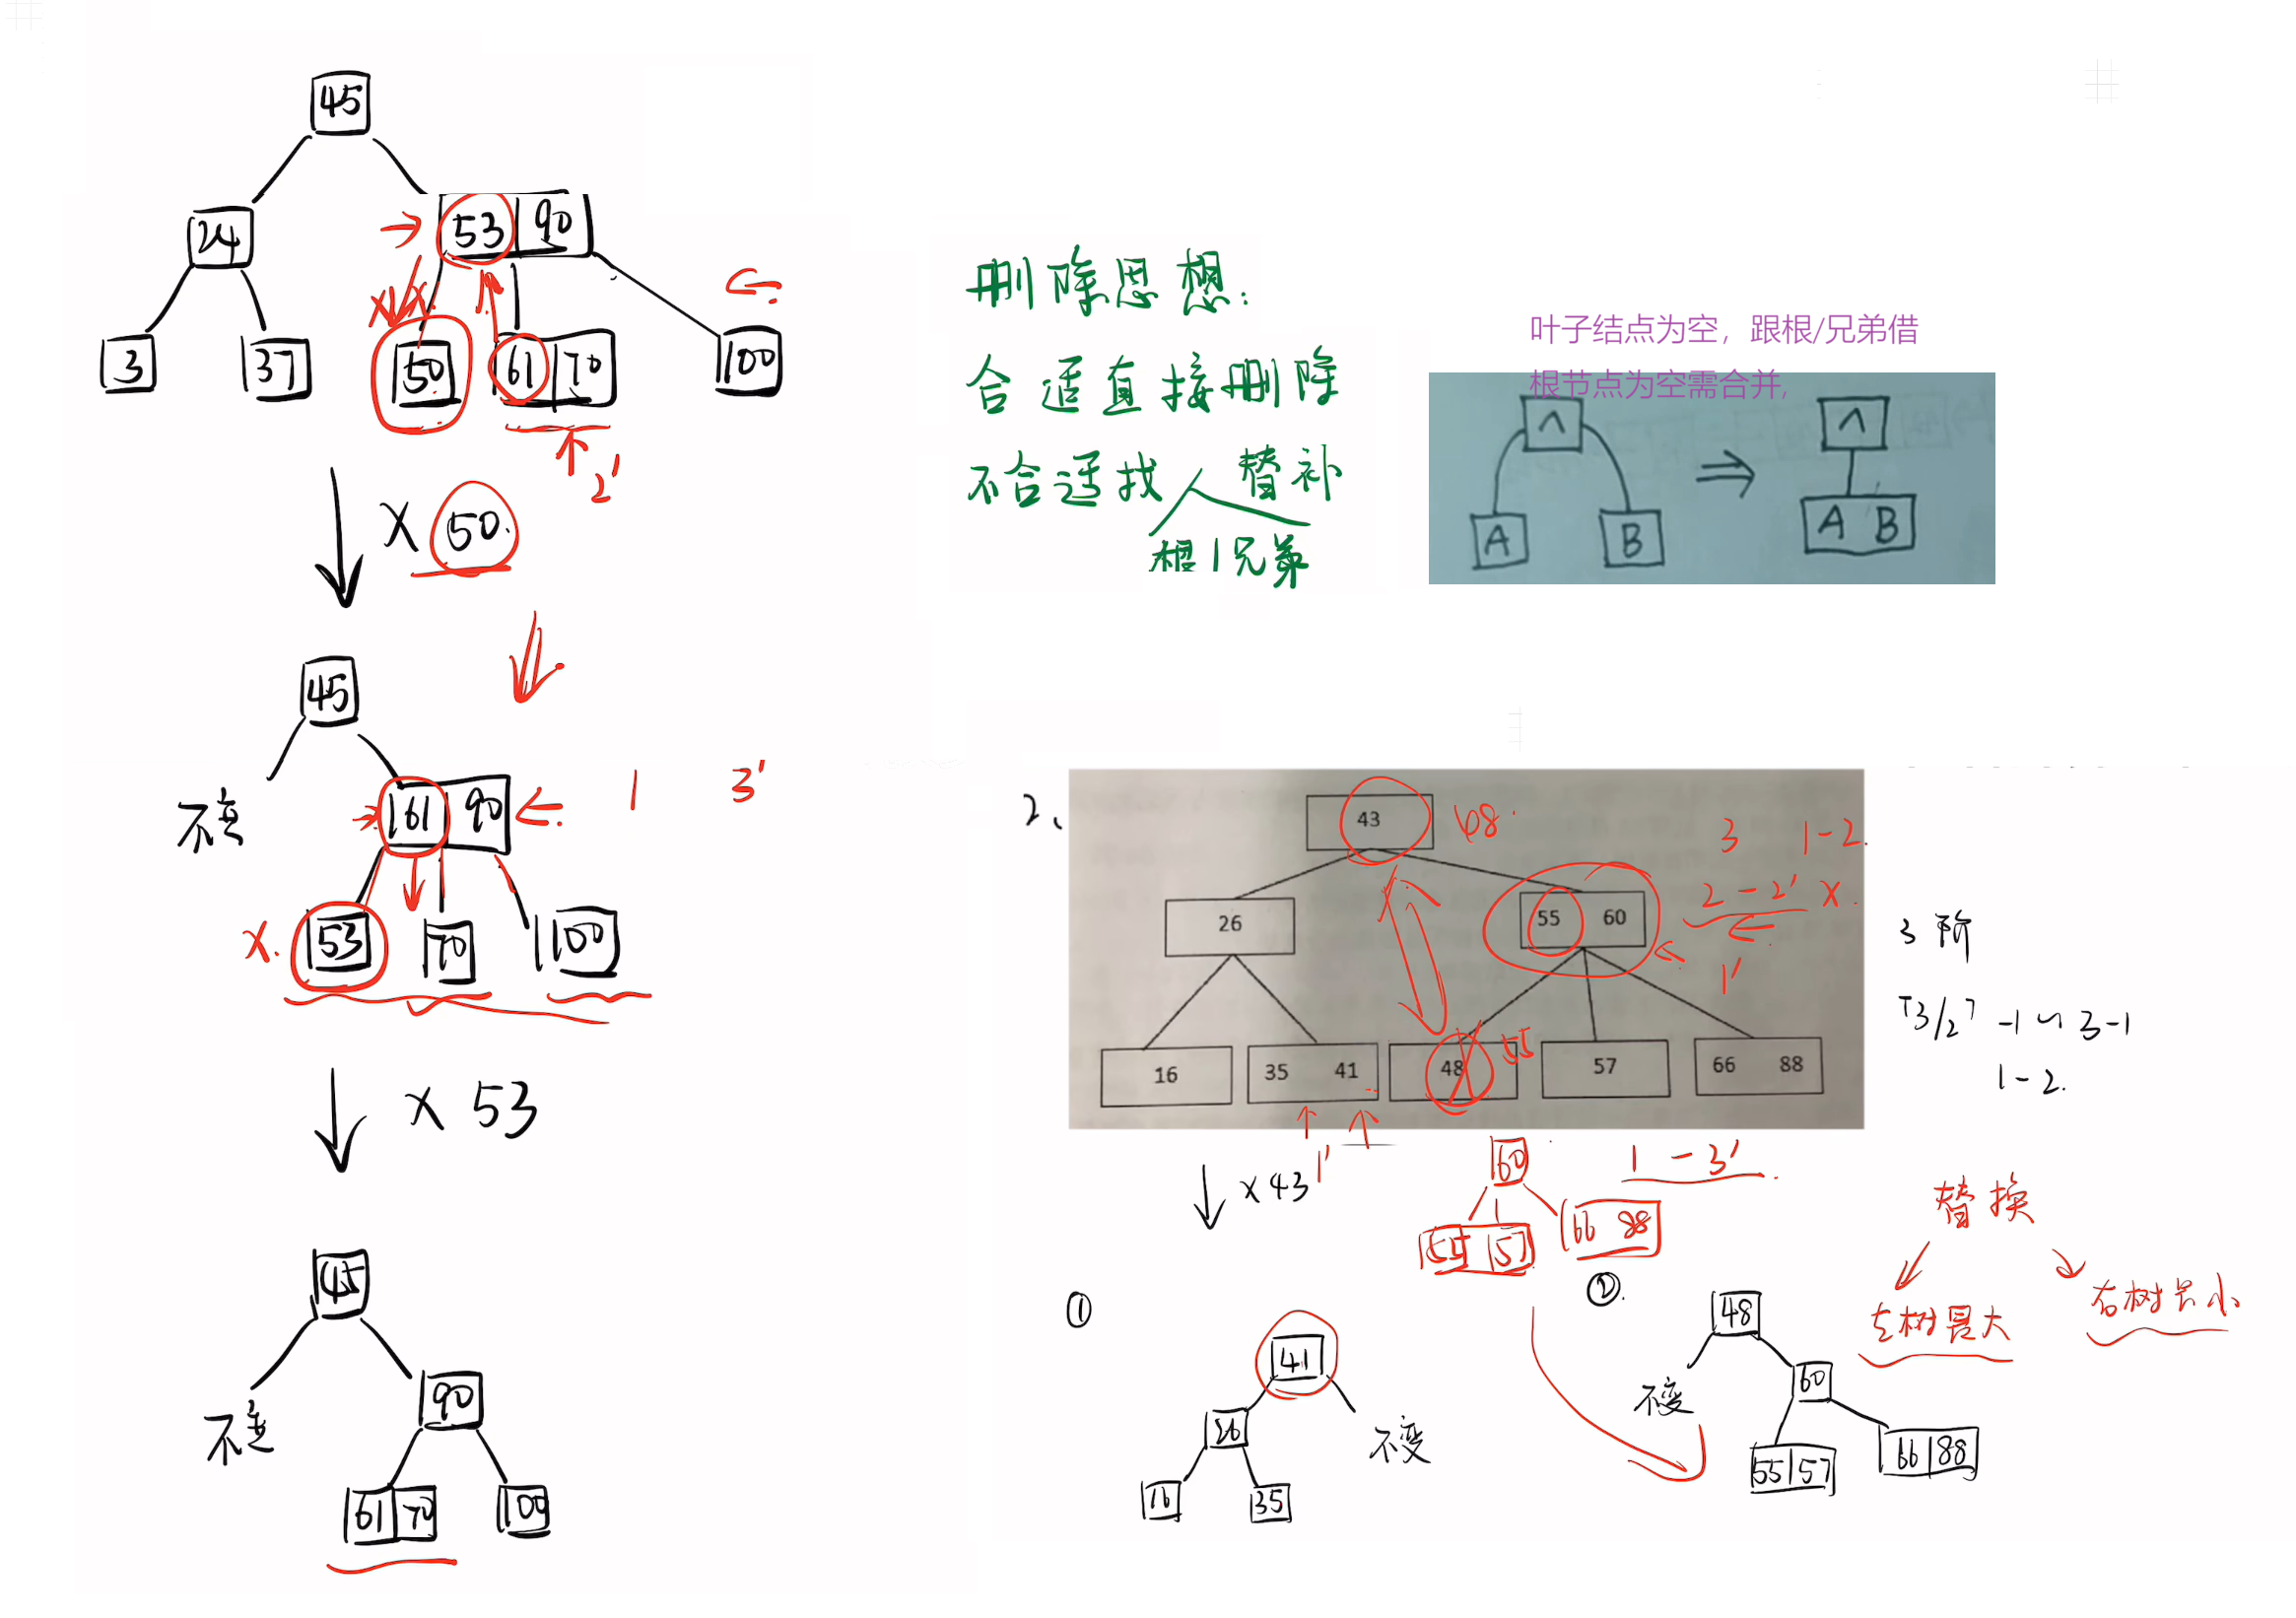 45
24
53 90
3
37
50
61 70
100
2'
X 50
45
不变
61 90
1 3'
X
53
70
100
X 53
45
不变
90
61 70
100
删除思想:
合适直接删除
不合适找 替补
根 | 兄弟
叶子结点为空，跟根/兄弟借
根节点为空需合并,
Λ
A B
⇒
Λ
A B
2、
43
48
3 1-2
2-2' X
26
55 60
1'
16
35 41
48 55
57
66 88
1'
3阶
⌈3/2⌉-1 ~ 3-1
1-2.
X 43
60
55 57
66 88
1-3'
替换
左树最大
右树最小
①
41
26
不变
16
35
②
48
不变
60
55 57
66 88